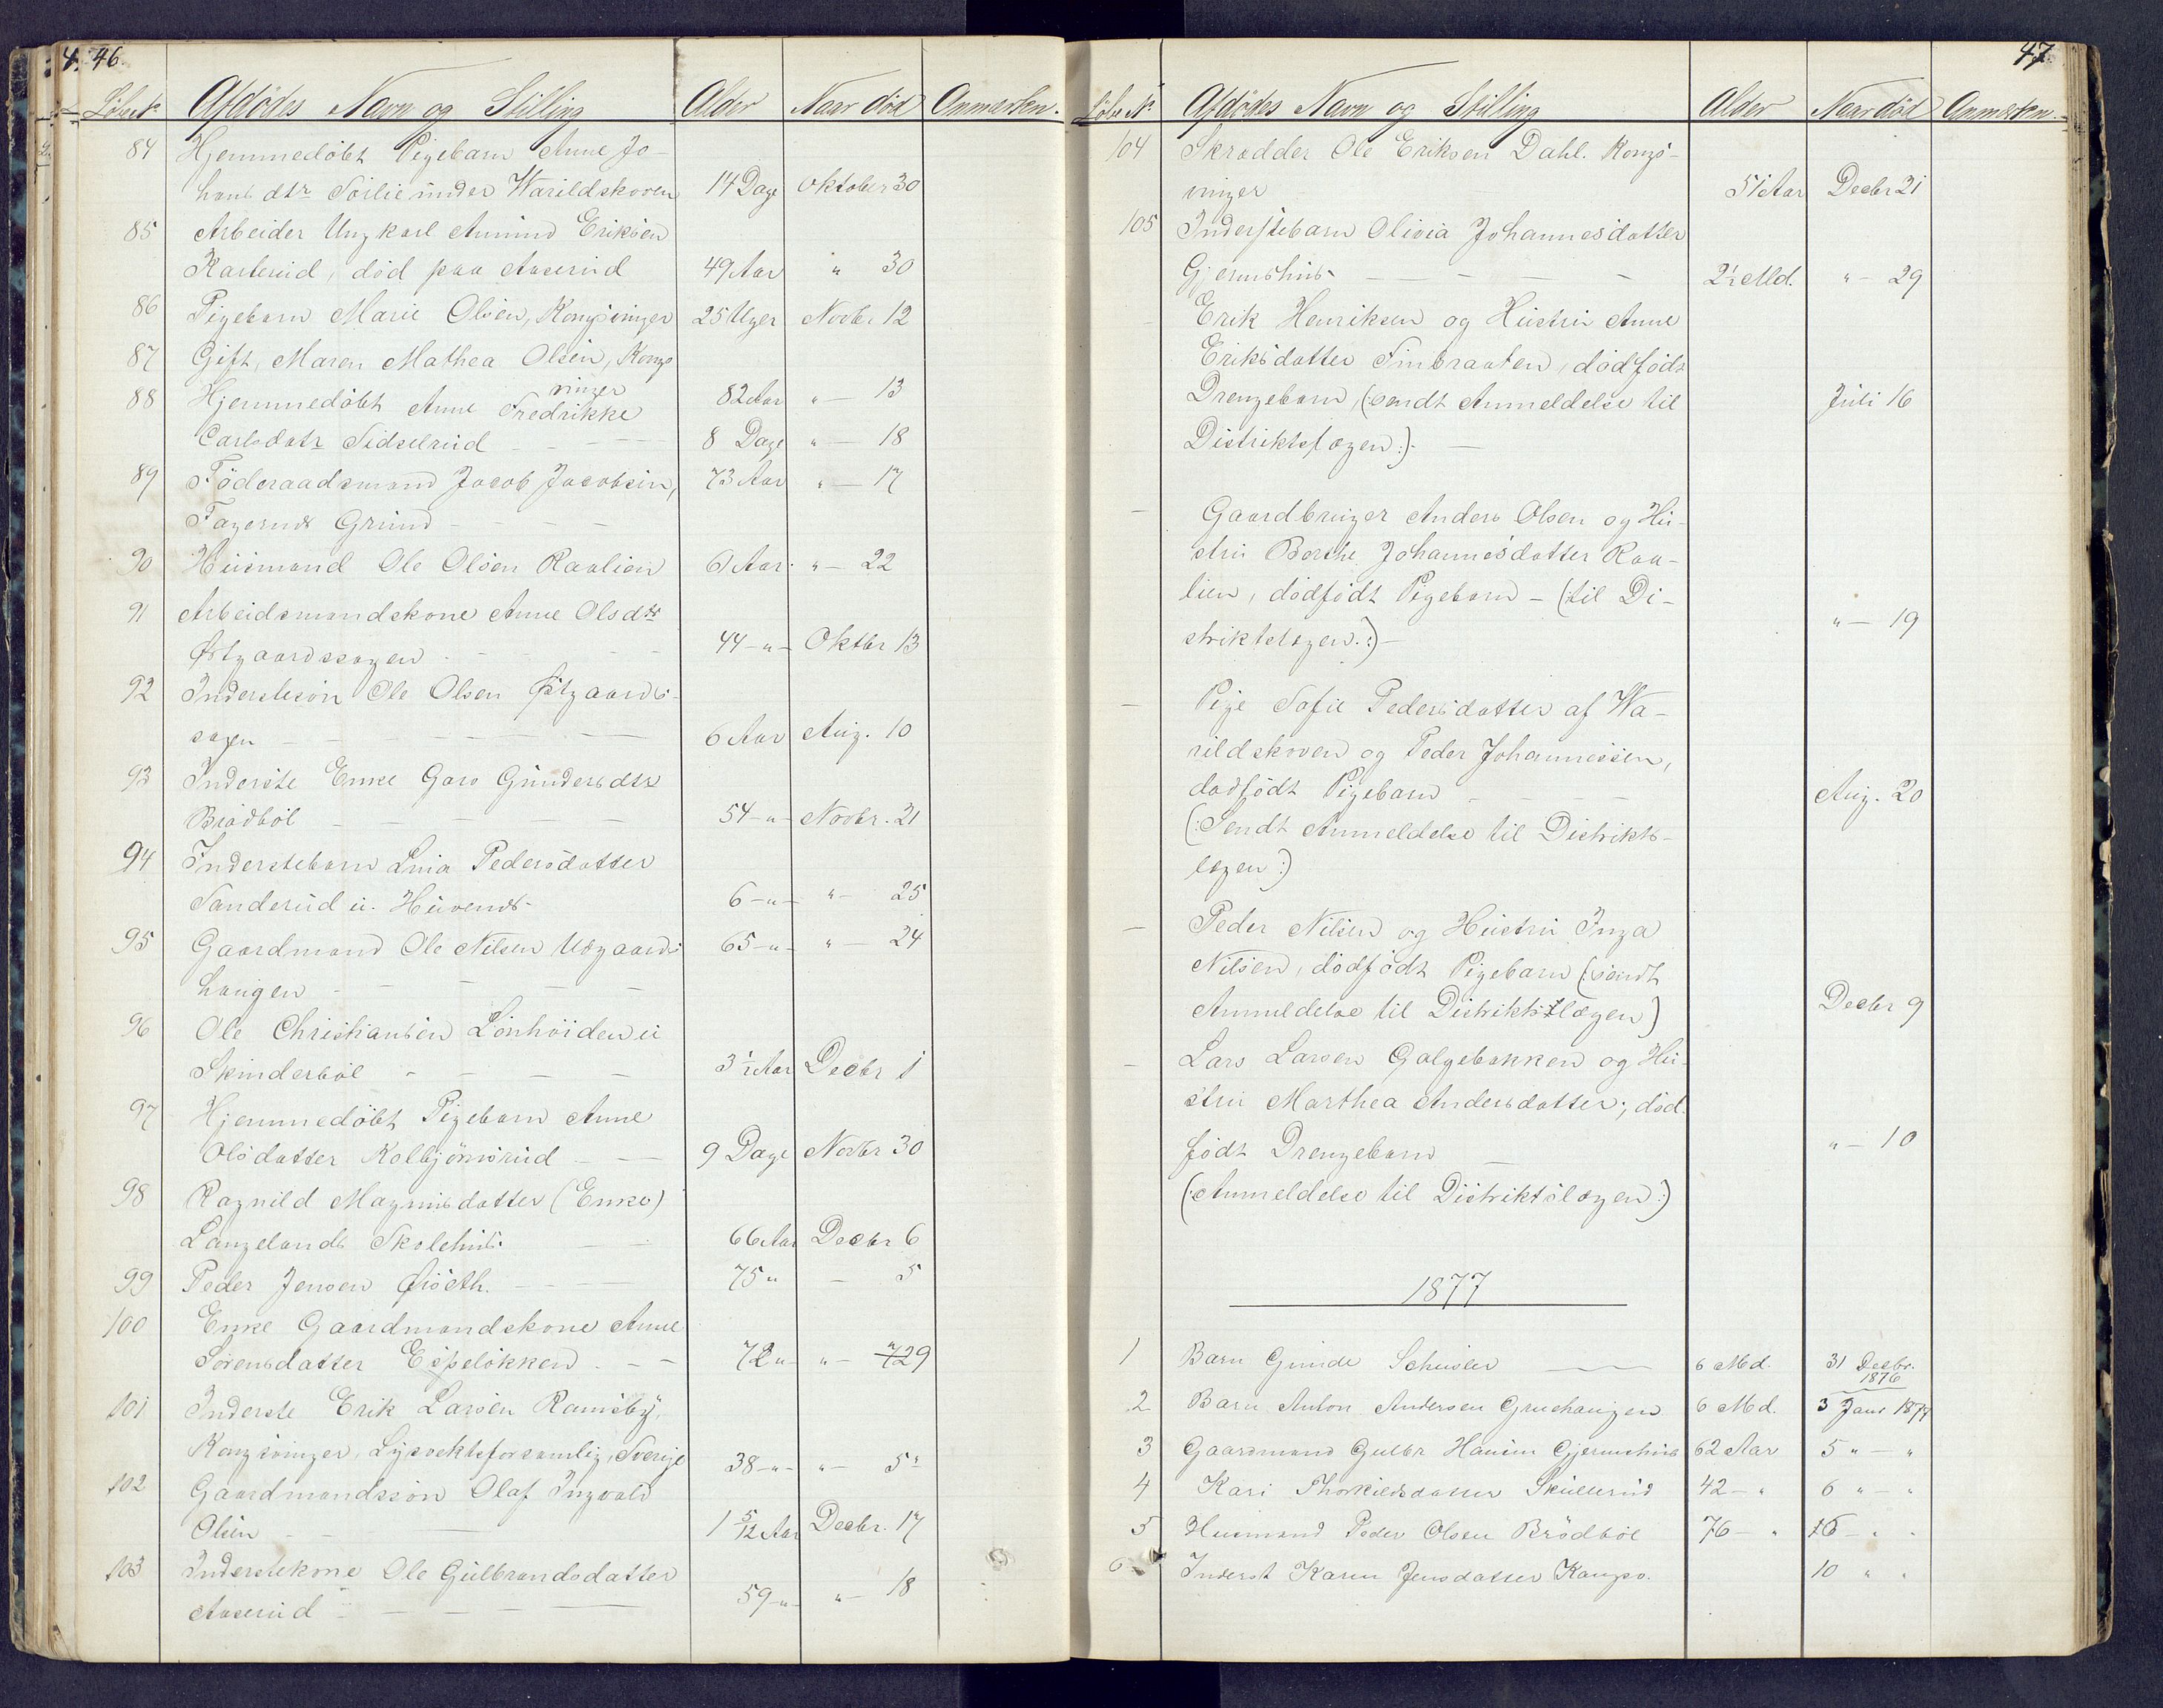 46
Løbe N. Afdødes Navn og Stilling Alder Naar død Anmærkn.
84 Hjemmedøbt Pigebarn Anne Jo-
hans dtr Sörlie under Warildskoven 14 Dage Oktober 30
85 Arbeider Ungkarl Amund Eriksen
Karterud, død paa Aaserud 49 Aar " 30
86 Pigebarn Marie Olsen, Kongsvinger 25 Uger Novbr. 12
87 Gift, Maren Mathea Olsen, Kongs
vinger 82 Aar " — 13
88 Hjemmedöbt Anne Fredrikke
Carlsdatr Sidselrud 8 Dage " — 18
89 Föderaadsmand Jacob Jacobsen, 73 Aar " — 17
Fageruds Grund
90 Huusmand Ole Olsen Raalien 6 Aar. " — 22
91 Arbeidsmandskone Anne Olsdtr
Østgaardssagen 44 - " - Oktbr 13
92 Inderstesön Ole Olsen Østgaards-
sagen 6 Aar Aug. 10
93 Inderste Enke Goro Gundersdtr
Brödböl 54 - " - Novbr. 21
94 Inderstebarn Lina Pedersdatter
Sanderud u. Huvends 6 - " - " — 25
95 Gaardmand Ole Nilsen Udgaards 65 - " - " — 24
haugen
96 Ole Christiansen Lönhöiden u
Skinderböl 3 1/2 Aar Decbr 1
97 Hjemmedöbt Pigebarn Anne
Olsdatter Kolbjörnsrud 9 Dage Novbr 30
98 Ragnild Magnusdatter (Enke)
Langelands Skolehus. 66 Aar Decbr 6
99 Peder Jensen Øiseth. 75 " — 5
100 Enke Gaardmandskone Anne
Sörensdatter Espelökken 72 " " — 29
101 Inderste Erik Larsen Ramsby,
Kongsvinger, Lysvektsforsamlig, Sverige 38 - " - " — 5
102 Gaardmandssön Olaf Ingvald
Olsen 1 5/12 Aar Decbr. 17
103 Inderstekone Ole Gulbrandsdatter
Aaserud 59 - " - " — 18
47
Løbe N. Afdødes Navn og Stilling Alder Naar död Anmærkn.
104 Skrædder Ole Eriksen Dahl. Kongs-
vinger 51 Aar Decbr 21
105 Inderstebarn Olivia Johannesdatter
Gjermshus 2 1/2 Md. " — 29
— Erik Henriksen og Hustru Anne
Eriksdatter Finbraaten, dödfödt
Drengebarn, (: sendt Anmeldelse til Juli 16
Distriktslægen :)
— Gaardbruger Anders Olsen og Hu-
stru Berthe Johannesdatter Raa-
lien, dödfödt Pigebarn — (: til Di- " — 19
striktslægen. :) —
— Pige Sofie Pedersdatter af Wa-
rildskoven og Peder Johannessen,
dödfödt Pigebarn Aug. 20
(: Sendt Anmeldelse til Distrikts-
lægen :)
— Peder Nilsen og Hustru Inga
Nilsen, dödfödt Pigebarn (: sendt
Anmeldelse til Distriktslægen) Decbr 9
— Lars Larsen Galgebakken og Hu-
stru Marthea Andersdatter; död-
födt Drengebarn " — 10
(: Anmeldelse til Distriktslægen :)
1877
1 Barn Gunda Schüsler 6 Md. 31 Decbr. 1876
2 Barn Anton Andersen Gruehaugen 6 Md. 3 Janr 1877
3 Gaardmand Gulbr Hansen Gjermshus 62 Aar 5 " — "
4 Kari Thorkildsdatter Skullerud 42 — " 6 " — "
5 Husmand Peder Olsen Brödböl 76 — "
6 Inderst Karen Jensdatter Kongsv. 10 " "